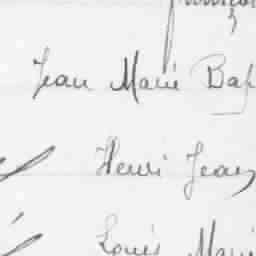 Jean Marie Bap
Henri Jean
Louis Marie